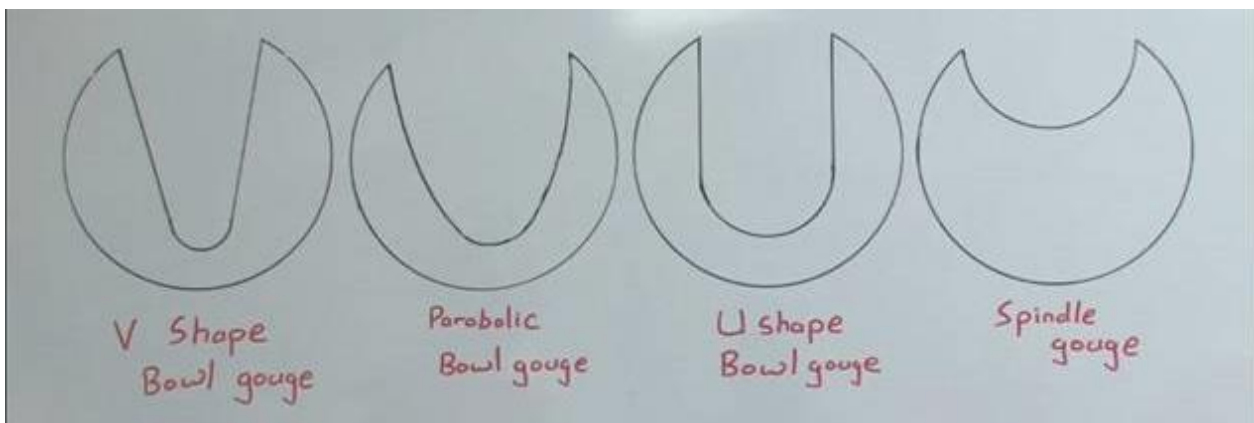 V Shape
Bowl gouge
Parabolic
Bowl gouge
U shape
Bowl gouge
Spindle
gouge